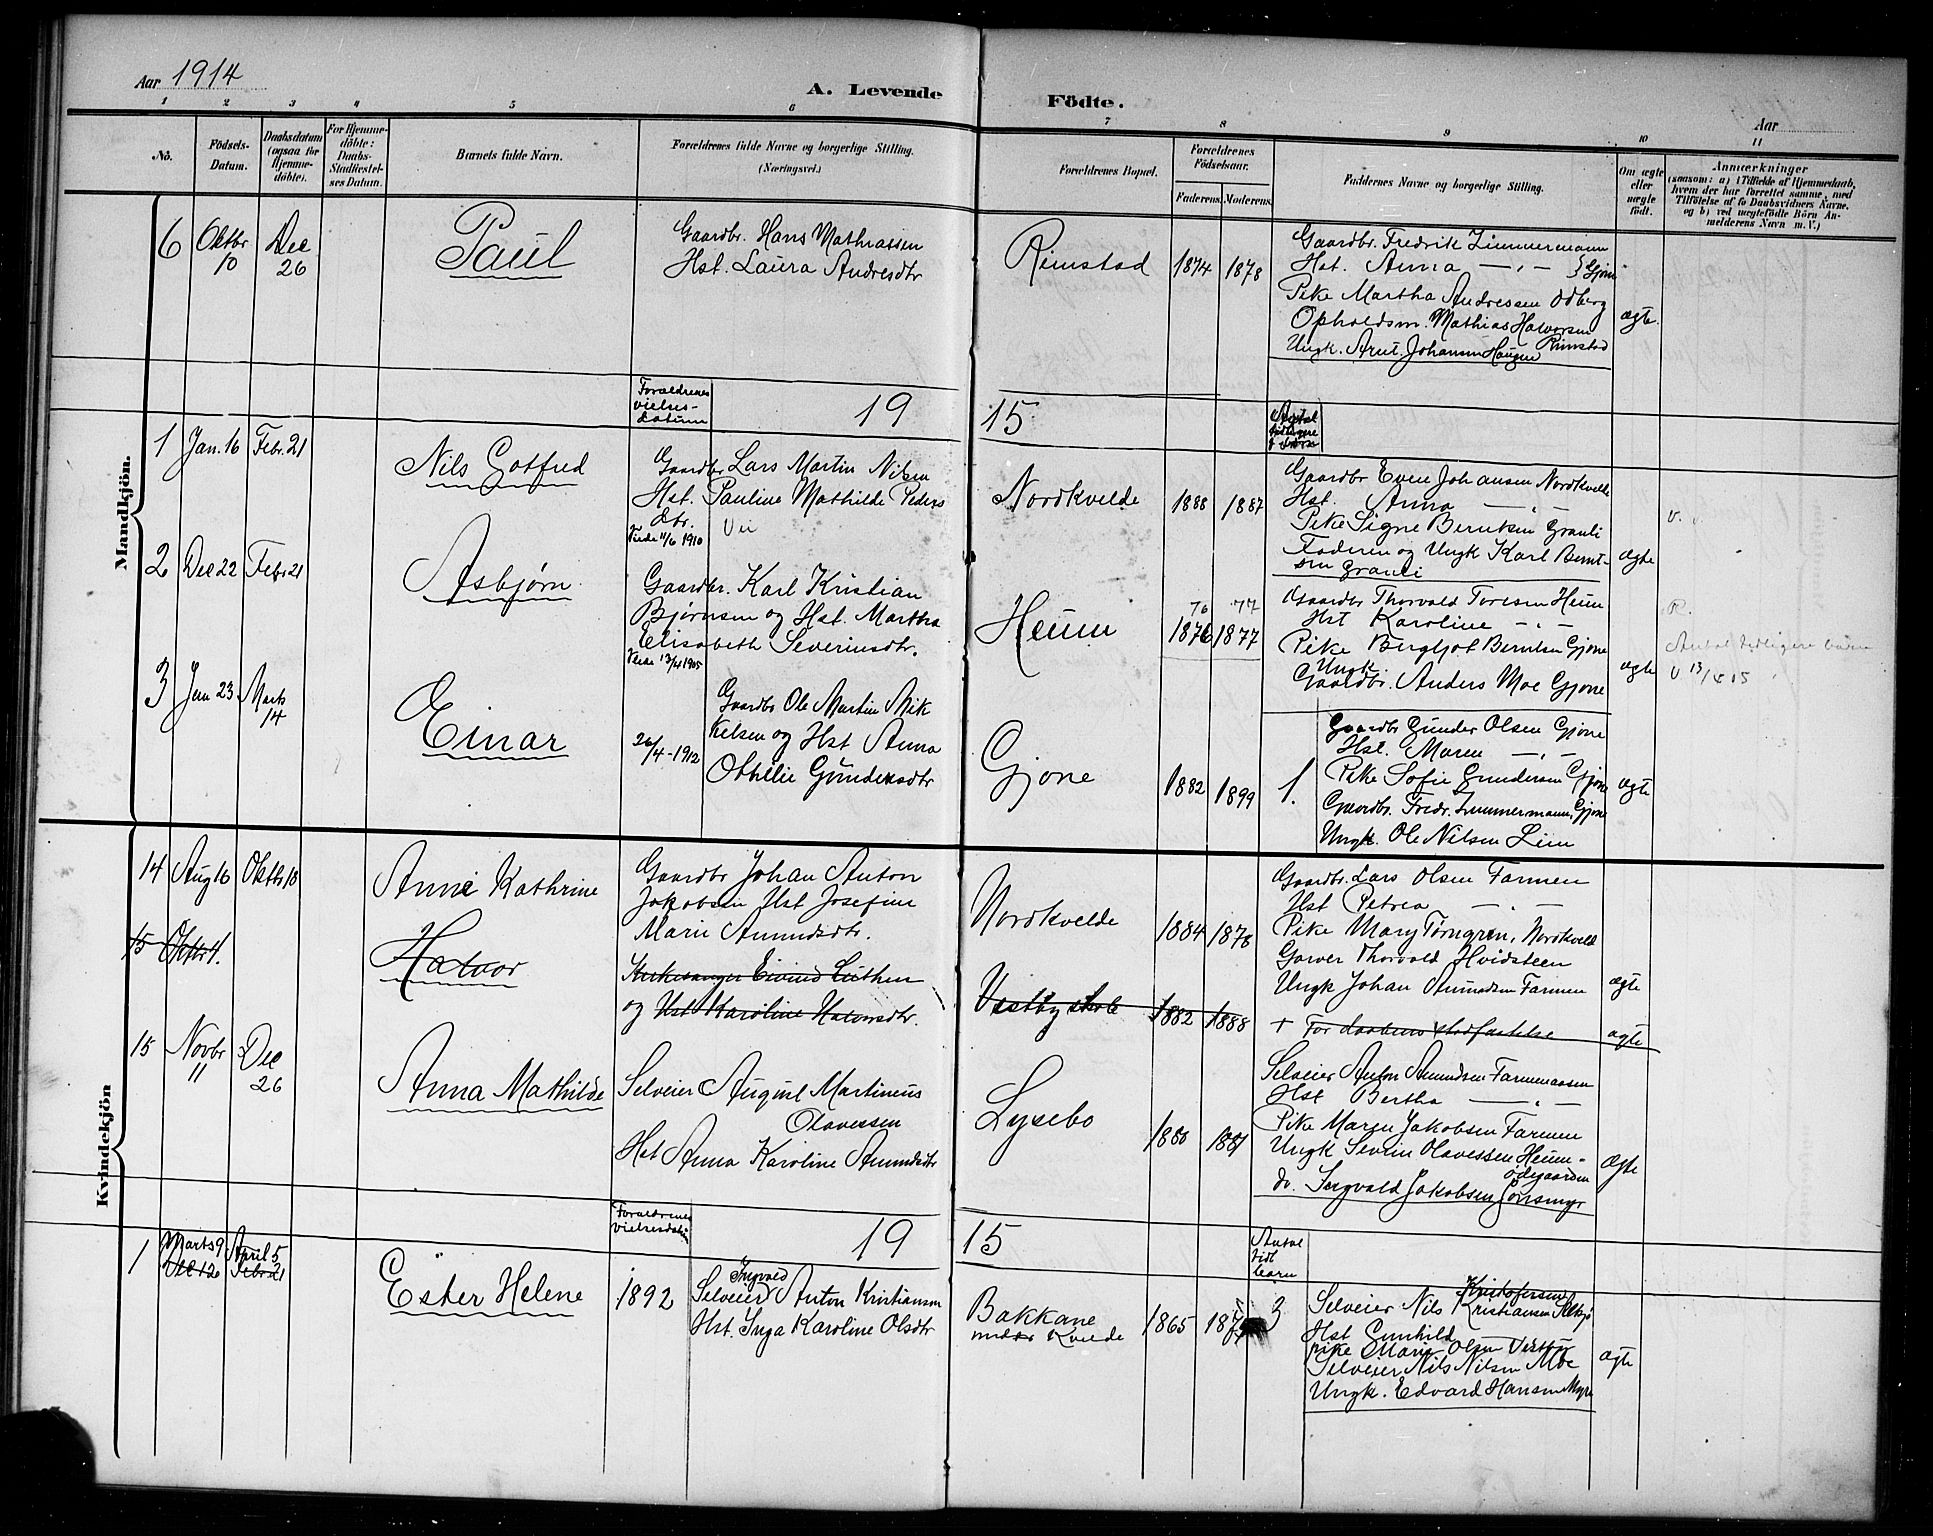 Aar 1914
A. Levende
Födte.
Aar
1 2 3 4 5 6 7 8 9 10 11
No.
Födsels-
Datum.
Daabsdatum
(ogsaa for
Hjemme-
döbte).
For Hjemme-
döbte:
Daabs-
Stadfæstel-
ses Datum.
Barnets fulde Navn.
Forældrenes fulde Navne og borgerlige Stilling.
(Næringsvei.)
Forældrenes Bopæl.
Forældrenes
Födselsaar.
Faderens. Moderens.
Faddernes Navne og borgerlige Stilling.
Om ægte
eller
uægte
födt.
Anmærkninger
(saasom: a) i Tilfælde af Hjemmedaab,
hvem der har forrettet samme, med
Tilföielse af to Daabsvidners Navne.
og b) ved uægtefödte Börn An-
melderens Navn m. V.)
Mandkjön.
6 Oktbr
10
Dec
26
Paul
Gaardbr. Hans Mathiassen
Hst. Laura Andresdtr
Rimstad 1874 1878
Gaardbr. Fredrik Zimmermann
Hst. Anna — „ — } Gjone
Pike Martha Andressen Odberg
Opholdsm. Mathias Halvorsen
Rimstad
Ungk. Arnt. Johansen Haugen
ægte.
Forældrenes
vielses-
datum
19 15
Antal
tidligere
børn
1 Jan. 16 Febr. 21
Nils Gotfred
Gaardbr Lars Martin Nilsen
Hst. Pauline Mathilde Peders
dtr.
Viede 11/6 1910
Nordkvelde 1888 1887
Gaardbr Even Johansen Nordkvelde
Hst. Anna — „ —
Pike Signe Berntsen Granli
Faderen og Ungk Karl Bernt-
sen Granli
ægte
2 Dec 22 Febr 21
Asbjørn
Gaardbr. Karl Kristian
Bjørnsen og Hst. Martha
Elisabeth Severinsdtr.
Heum
76 77
1876 1877
Gaardbr Thorvald Toresen Heum
Hst Karoline — „ —
Pike Bergljot Berntsen Gjone
Ungk.
Gaardbr. Anders Moe Gjone
ægte
Antal tidligere børn
3 Jan 23 Marts
14
Einar
26/4 - 1912
Gaardbr Ole Martin Mik
kelsen og Hst Anna
Othilie Gundersdtr
Gjone 1882 1899 1.
Gaardbr Gunder Olsen Gjone
Hst. Maren — „ —
Pike Sofie Gundersen Gjone
Gaardbr. Fredr. Zimmermann, Gjone
Ungk. Ole Nilsen Lien
ægte
Kvindekjön
14 Aug 16 Oktbr 18
Anne Kathrine
Gaardbr Johan Anton
Jakobsen Hst Josefine
Marie Amundsdtr.
Nordkvelde 1884 1878
Gaardbr. Lars Olsen Farmen
Hst Petrea — „ —
Pike Mary Törngren, Nordkvelde
Garver Thorvald Hvidsteen
Ungk Johan Amundsen Farmen
ægte
15 Oktbr 1.
Halvor
Kirkesanger Eivind Luthen
og Hst Karoline Halvorsdtr.
Vestby skole 1882 1888
+ Før daabens stadfæstelse
ægte
15 Novbr
11
Dec
26
Anna Mathilde
Selveier August Martinius
Olavessen
Hst Anna Karoline Amundsdtr
Lysebo 1880 1881
Selveier Anton Amundsen Farmenaasen
Hst Bertha — „ —
Pike Maren Jakobsen Farmen
Ungk Sevlin Olavessen Heum-
ødegaarden
do. Ingvald Jakobsen Jønsmyr
Ægte
Forældrenes
vielsesdatum
19 15
Antal
tidl
børn
1 Marts 9 April 5
Dec 12 Febr 21
Ester Helene
1892
Ingvald
Selveier Anton Kristiansen
Hst. Inga Karoline Olsdtr
Bakkane
under Kvelde
1865 3
Kristofersen
Selveier Nils Kristiansen
Hst Gunhild
pike Marie Olsen
Selveier Nils Nilsen Moe
Ungk. Edvard Hansen Myre
ægte